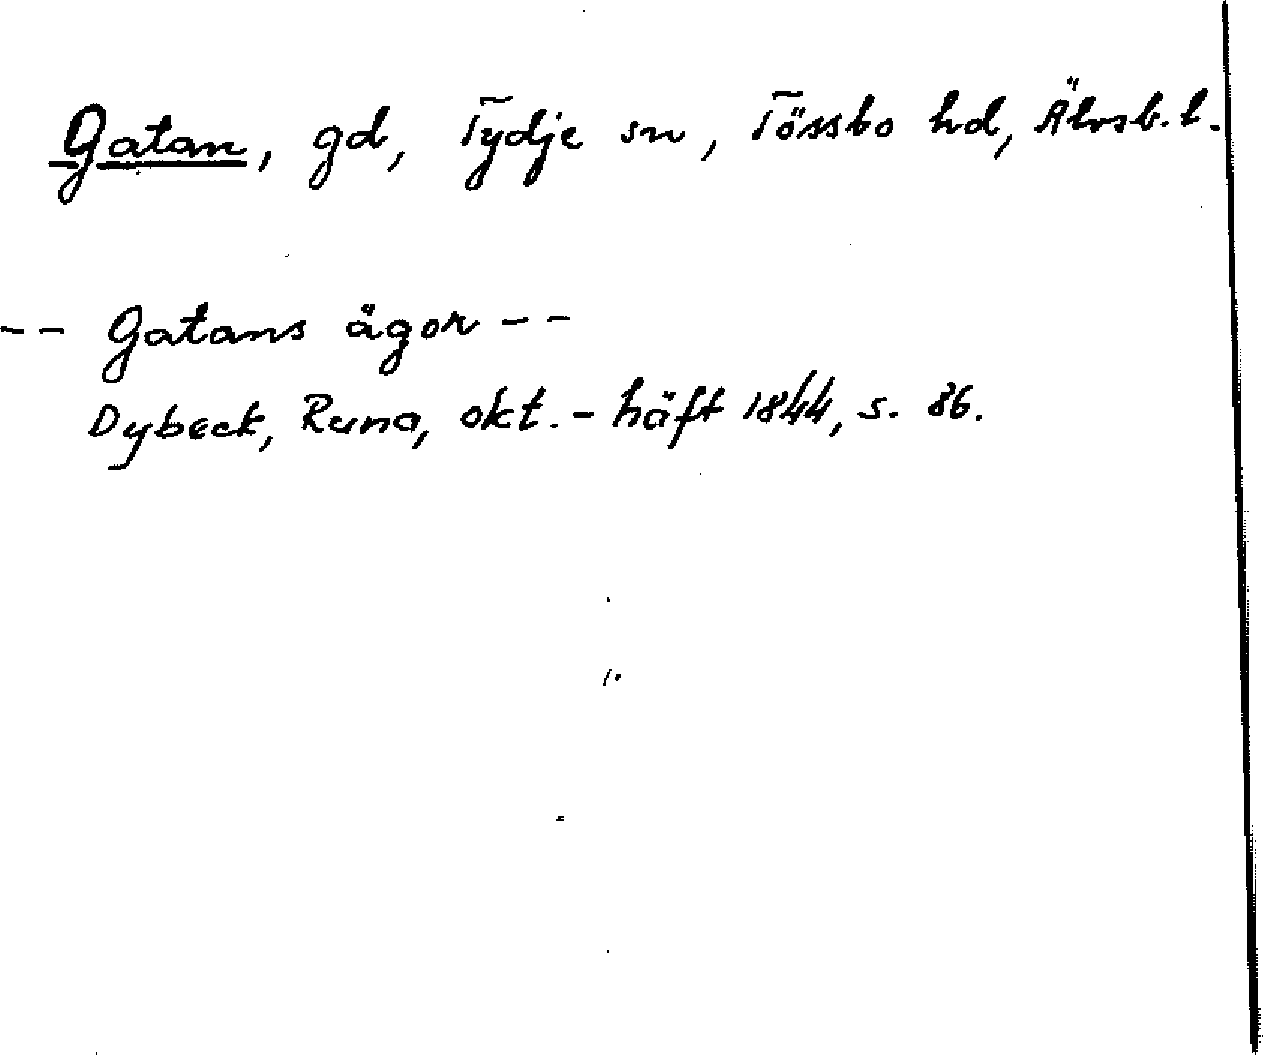 Gatan, gd, Tydje sn, Tössbo hd, Älvsb.l.
-- Gatans ägor --
Dybeck, Runa, okt.- häft 1844, s. 86.